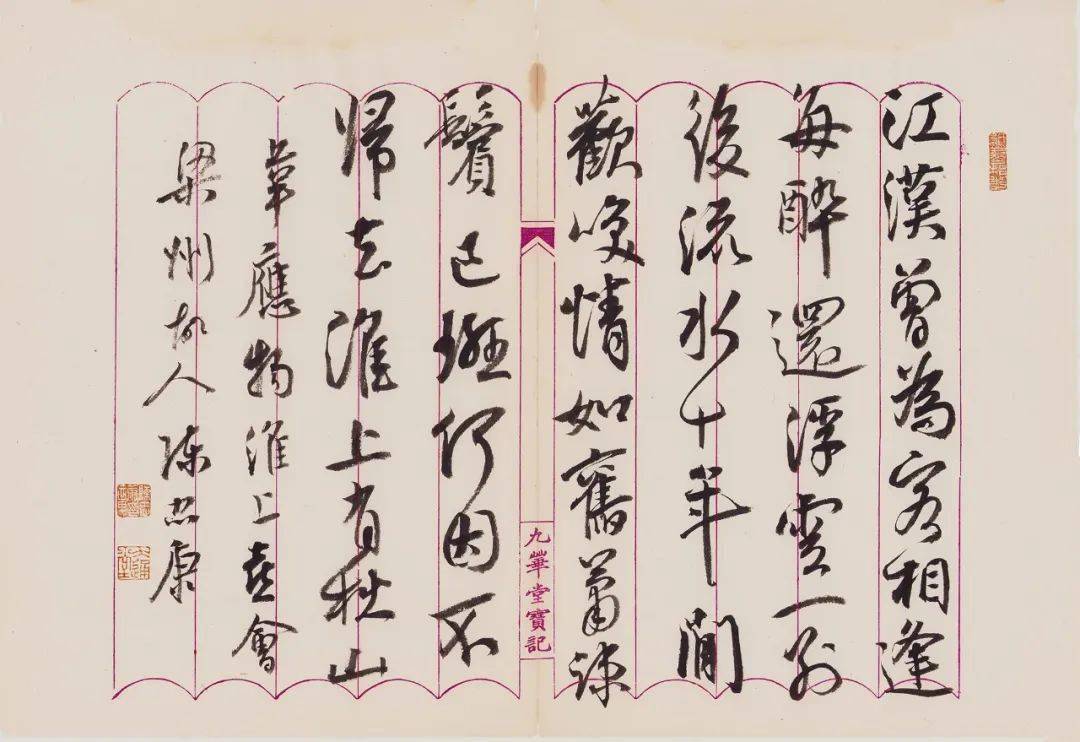 江漢曾為客相逢
每醉還浮雲一別
後流水十年間
歡咲情如舊蕭疎
鬢已斑何因不
帰去淮上有秋山
韋應物淮上喜會
梁州故人陳忠康
九華堂寶記